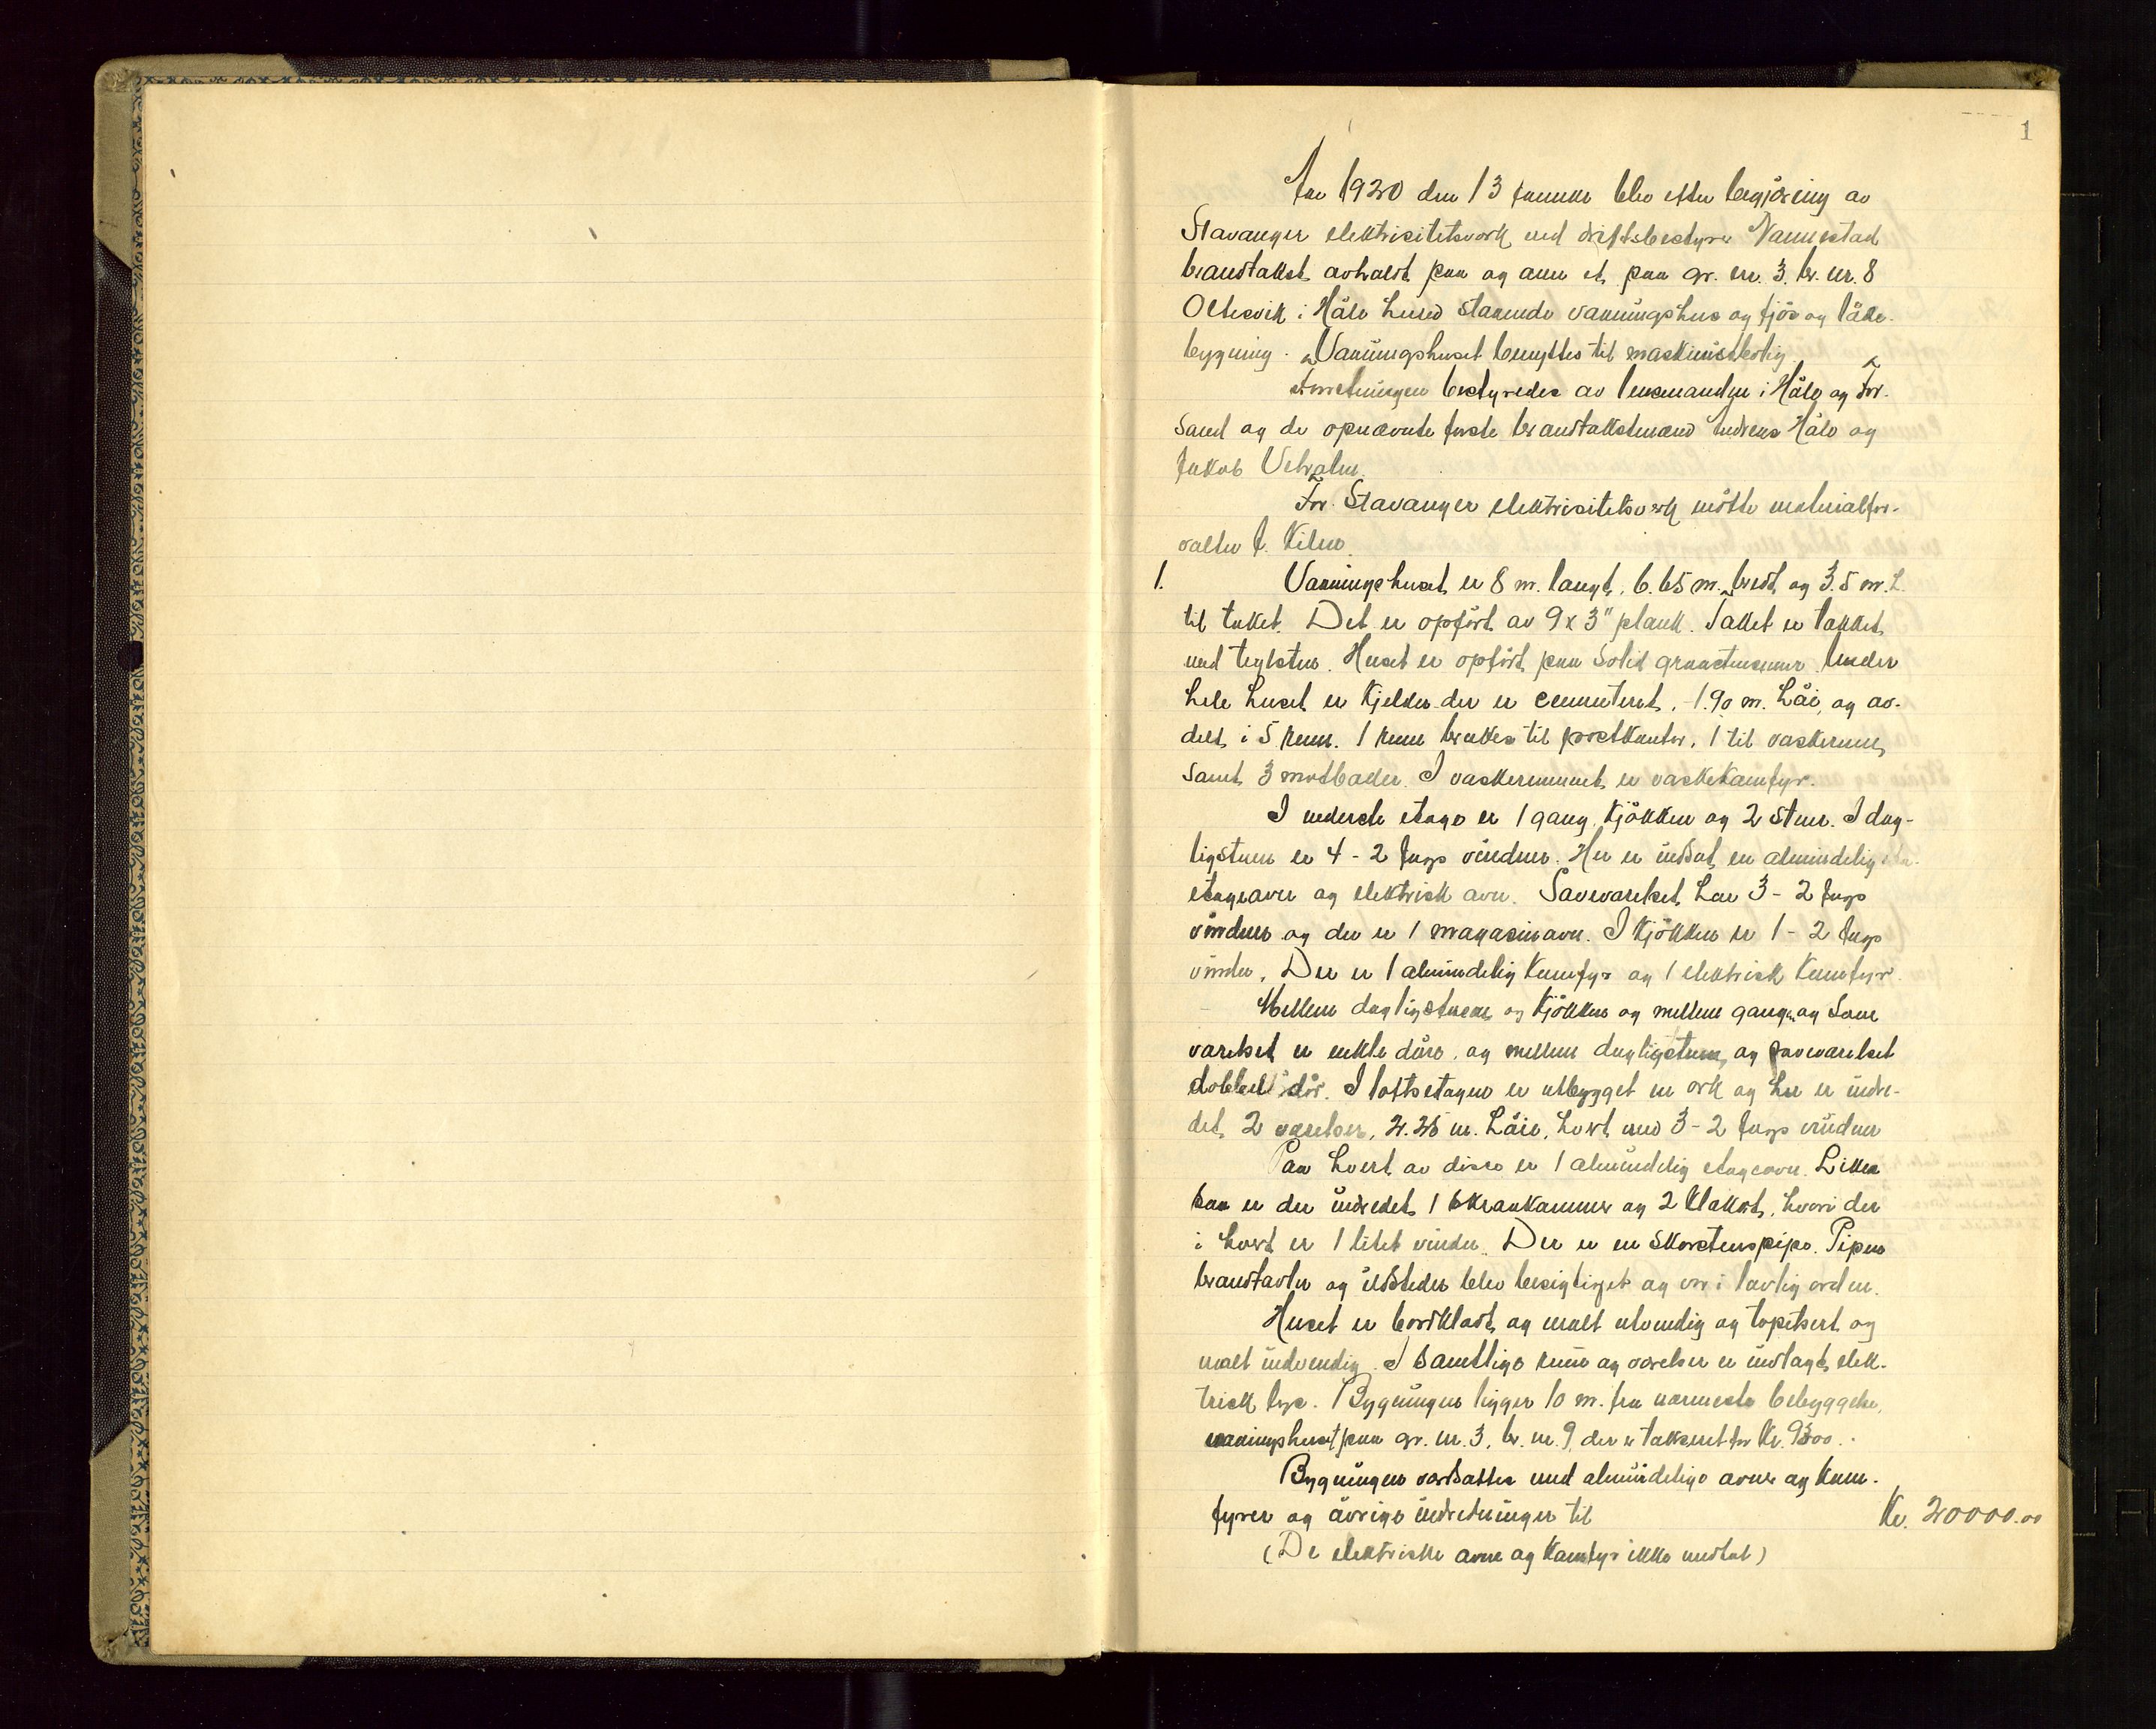 1
Aar 1920 den 13 januar blev efter begjæring av
Stavanger elektricitetsverk ved driftsbestyrer Vannestad
brandtakst avholdt paa og over et paa gr. nr. 3. br. nr. 8
Oltesvik i Høle herred staaende vaaningshus og fjøs og løde-
bygning. Vaaningshuset benyttes til maskinistbolig
Forretningen bestyredes av lensmanden i Høle og For-
sand og de opnævnte faste brandtakstmænd Andreas Høle og
Jakob
For Stavanger elektricitetsverk møtte materialfor-
valter J.
1. Vaaningshuset er 8 m. langt, 6.65 m. bredt og 3.5 m. h.
til taket. Det er opført av 9 x 3" plank. Taket er tækket
med teglsten. Huset er opført paa solid graastensmur. Under
hele huset er kjelder der er cementeret, 1.90 m. høi, og av-
delt i 5 rum. 1 rum brukes til postkontor, 1 til vaskerum,
samt 3 matboder. I vaskerummet er vaskekomfyr.
I nederste etage er 1 gang, kjøkken og 2 stuer. I dag-
ligstuen er 4 - 2 fags vinduer. Her er indsat en almindelig
etageovn og elektrisk ovn. Soveværelset har 3 - 2 fags
vinduer og der er 1 magasinovn. I kjøkken er 1 - 2 fags
vindu. Der er 1 almindelig komfyr og 1 elektrisk komfyr.
Mellem dagligstuen og kjøkken og mellem gangen og sove
værelset er enkle døre, og mellem dagligstuen og soveværelset
dobbelt dør. I loftsetagen er utbygget en ark og her er indre-
det 2 værelser, 2.25 m. høie, hvert med 3 - 2 fags vinduer
Paa hvert av disse er 1 almindelig etageovn. Likesaa
saa er der indredet 1 skraakammer og 2 klakot, hvori der
i hvert er 1 litet vindu. Der er en skorstenspipe. Pipen
brandtavler og ildsteder blev besigtiget og var i lovlig orden.
Huset er bordklædt og malt utvendig og tapetsert og
malt indvendig. I samtlige rum og værelser er indlagt elek-
trisk lys. Bygningen ligger 10 m. fra nærmeste bebyggelse,
vaaningshuset paa gr. nr. 3, br. nr. 9, der er takseret for Kr. 9300.-
Bygningen værdsattes med almindelige ovner og kom-
fyrer og øvrige indretninger til Kr. 20000.00
(De elektriske ovne og komfyr ikke medtat)